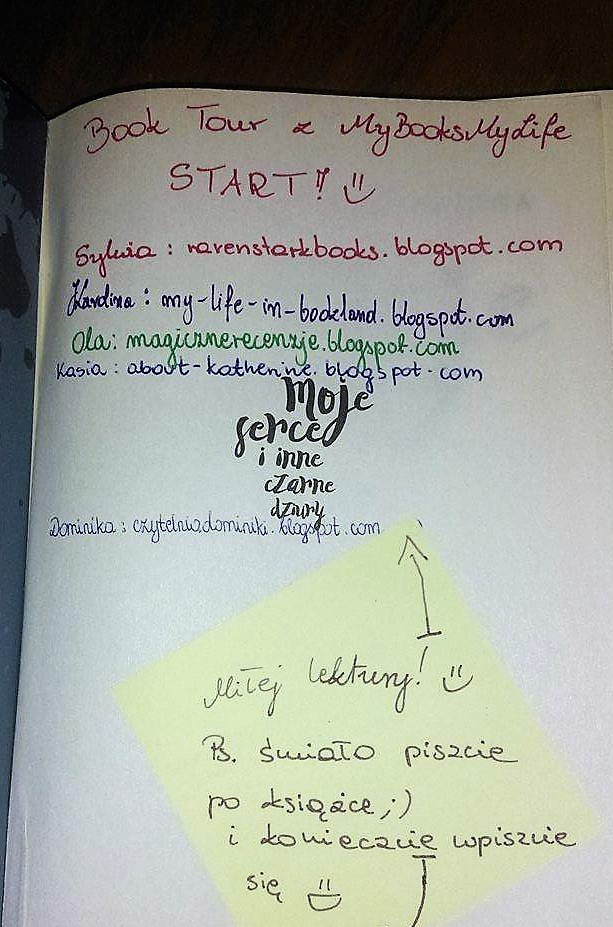 Book Tour z MyBooksMyLife
START! :)
Sylwia : ravenstarkbooks.blogspot.com
Karolina : my-life-in-bookland.blogspot.com
Ola: magicznerecenzje.blogspot.com
Kasia : about-katherine.blogspot.com
Moje
serce
i inne
czarne
dziury
Dominika : czytelniadominiki.blogspot.com
Miłej lektury! :)
Ps. śmiało piszcie
po książce ;)
i koniecznie wpiszcie
się :)